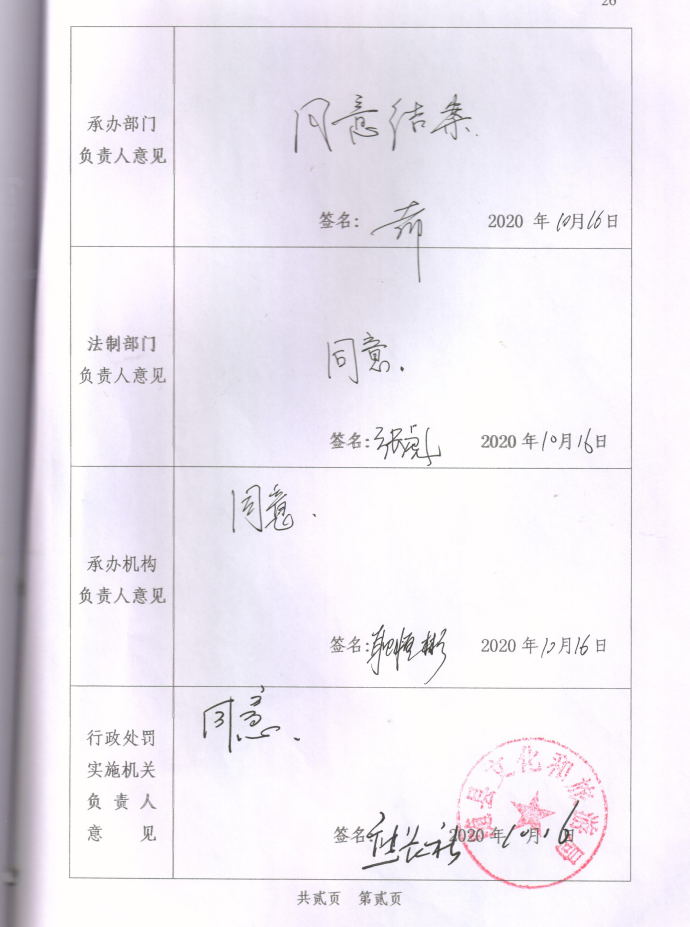 26
承办部门
负责人意见
同意结案.
签名：
2020 年 10月16日
法制部门
负责人意见
同意.
签名：张
2020 年10月16日
承办机构
负责人意见
同意.
签名：
2020 年10月16日
行政处罚
实施机关
负责人
意见
同意.
签名
2020 年10月16日
县文化和旅游局
共贰页 第贰页